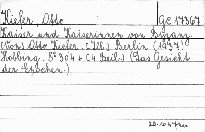 Kiefer, Otto Ge 17367
Kaiser und Kaiserinnen von Byzanz
(Von) Otto Kiefer. (Tfl.) Berlin (1937)
Hobbing. 8° 304 + (4 Beil.) (Das Gesicht
der Epochen.)